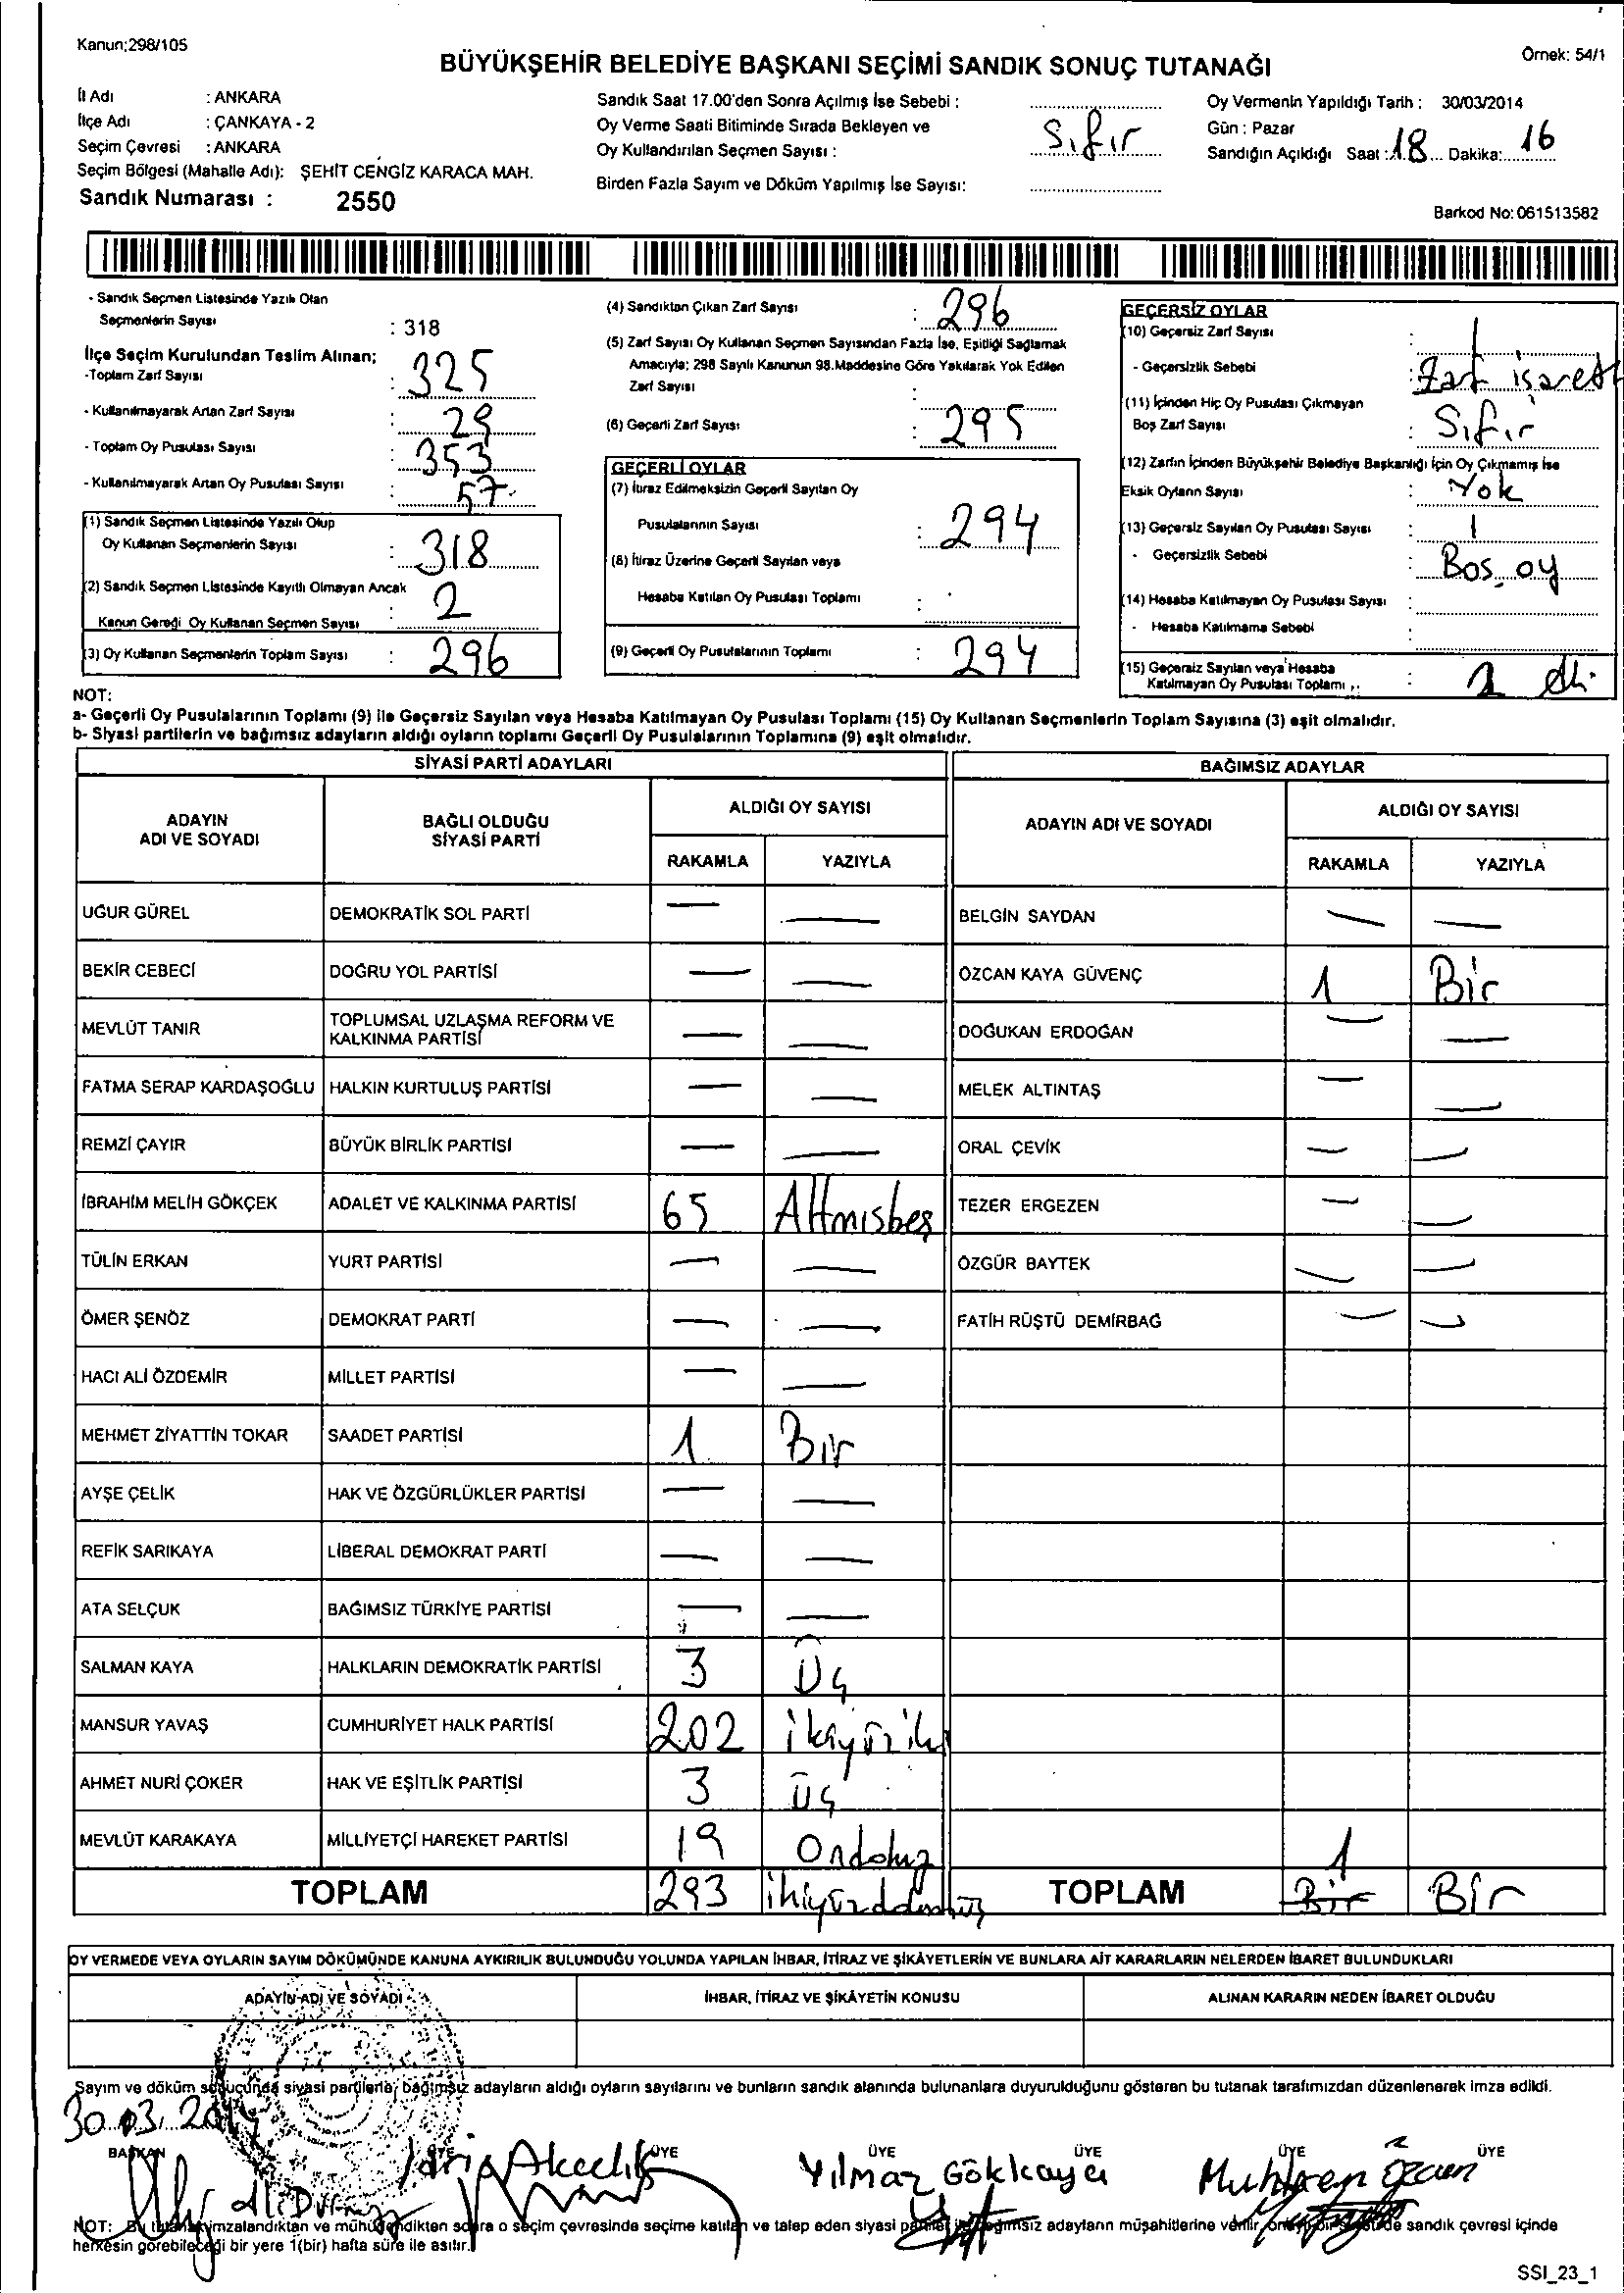 Kanun;298/105
Örnek: 54/1
BÜYÜKŞEHİR BELEDİYE BAŞKANI SEÇİMİ SANDIK SONUÇ TUTANAĞI
İl Adı : ANKARA
İlçe Adı : ÇANKAYA - 2
Seçim Çevresi : ANKARA
Seçim Bölgesi (Mahalle Adı): ŞEHİT CENGİZ KARACA MAH.
Sandık Numarası : 2550
Sandık Saat 17.00'den Sonra Açılmış İse Sebebi :
Oy Verme Saati Bitiminde Sırada Bekleyen ve
Oy Kullandırılan Seçmen Sayısı : Sıfır
Birden Fazla Sayım ve Döküm Yapılmış İse Sayısı:
Oy Vermenin Yapıldığı Tarih : 30/03/2014
Gün : Pazar
Sandığın Açıldığı Saat : 18 Dakika: 16
Barkod No: 061513582
- Sandık Seçmen Listesinde Yazılı Olan
Seçmenlerin Sayısı : 318
İlçe Seçim Kurulundan Teslim Alınan;
-Toplam Zarf Sayısı : 325
- Kullanılmayarak Artan Zarf Sayısı : 29
- Toplam Oy Pusulası Sayısı : 353
- Kullanılmayarak Artan Oy Pusulası Sayısı : 57
(1) Sandık Seçmen Listesinde Yazılı Olup
Oy Kullanan Seçmenlerin Sayısı : 318
(2) Sandık Seçmen Listesinde Kayıtlı Olmayan Ancak
Kanun Gereği Oy Kullanan Seçmen Sayısı : 2
(3) Oy Kullanan Seçmenlerin Toplam Sayısı : 296
(4) Sandıktan Çıkan Zarf Sayısı : 296
(5) Zarf Sayısı Oy Kullanan Seçmen Sayısından Fazla İse, Eşitliği Sağlamak
Amacıyla; 298 Sayılı Kanunun 98.Maddesine Göre Yakılarak Yok Edilen
Zarf Sayısı :
(6) Geçerli Zarf Sayısı : 295
GEÇERLİ OYLAR
(7) İtiraz Edilmeksizin Geçerli Sayılan Oy
Pusulalarının Sayısı : 294
(8) İtiraz Üzerine Geçerli Sayılan veya
Hesaba Katılan Oy Pusulası Toplamı :
(9) Geçerli Oy Pusulalarının Toplamı : 294
GEÇERSİZ OYLAR
(10) Geçersiz Zarf Sayısı : 1
- Geçersizlik Sebebi : Zarf işaretli
(11) İçinden Hiç Oy Pusulası Çıkmayan
Boş Zarf Sayısı : Sıfır
(12) Zarfın İçinden Büyükşehir Belediye Başkanlığı İçin Oy Çıkmamış İse
Eksik Oyların Sayısı : Yok
(13) Geçersiz Sayılan Oy Pusulası Sayısı : 1
- Geçersizlik Sebebi : Boş oy
(14) Hesaba Katılmayan Oy Pusulası Sayısı :
- Hesaba Katılmama Sebebi :
(15) Geçersiz Sayılan veya Hesaba
Katılmayan Oy Pusulası Toplamı :
NOT:
a- Geçerli Oy Pusulalarının Toplamı (9) ile Geçersiz Sayılan veya Hesaba Katılmayan Oy Pusulası Toplamı (15) Oy Kullanan Seçmenlerin Toplam Sayısına (3) eşit olmalıdır.
b- Siyasi partilerin ve bağımsız adayların aldığı oyların toplamı Geçerli Oy Pusulalarının Toplamına (9) eşit olmalıdır.
SİYASİ PARTİ ADAYLARI BAĞIMSIZ ADAYLAR
ADAYIN ADI VE SOYADI BAĞLI OLDUĞU SİYASİ PARTİ ALDIĞI OY SAYISI ADAYIN ADI VE SOYADI ALDIĞI OY SAYISI
RAKAMLA YAZIYLA RAKAMLA YAZIYLA
UĞUR GÜREL DEMOKRATİK SOL PARTİ — — BELGİN SAYDAN — —
BEKİR CEBECİ DOĞRU YOL PARTİSİ — — ÖZCAN KAYA GÜVENÇ 1 Bir
MEVLÜT TANIR TOPLUMSAL UZLAŞMA REFORM VE KALKINMA PARTİSİ — — DOĞUKAN ERDOĞAN — —
FATMA SERAP KARDAŞOĞLU HALKIN KURTULUŞ PARTİSİ — — MELEK ALTINTAŞ — —
REMZİ ÇAYIR BÜYÜK BİRLİK PARTİSİ — — ORAL ÇEVİK — —
İBRAHİM MELİH GÖKÇEK ADALET VE KALKINMA PARTİSİ 65 Altmışbeş TEZER ERGEZEN — —
TÜLİN ERKAN YURT PARTİSİ — — ÖZGÜR BAYTEK — —
ÖMER ŞENÖZ DEMOKRAT PARTİ — — FATİH RÜŞTÜ DEMİRBAĞ — —
HACI ALİ ÖZDEMİR MİLLET PARTİSİ — —
MEHMET ZİYATTİN TOKAR SAADET PARTİSİ 1 Bir
AYŞE ÇELİK HAK VE ÖZGÜRLÜKLER PARTİSİ — —
REFİK SARIKAYA LİBERAL DEMOKRAT PARTİ — —
ATA SELÇUK BAĞIMSIZ TÜRKİYE PARTİSİ — —
SALMAN KAYA HALKLARIN DEMOKRATİK PARTİSİ 3 Üç
MANSUR YAVAŞ CUMHURİYET HALK PARTİSİ 202 ikiyüziki
AHMET NURİ ÇOKER HAK VE EŞİTLİK PARTİSİ 3 Üç
MEVLÜT KARAKAYA MİLLİYETÇİ HAREKET PARTİSİ 19 Ondokuz
TOPLAM 293 TOPLAM 1 Bir Bir
OY VERMEDE VEYA OYLARIN SAYIM DÖKÜMÜNDE KANUNA AYKIRILIK BULUNDUĞU YOLUNDA YAPILAN İHBAR, İTİRAZ VE ŞİKÂYETLERİN VE BUNLARA AİT KARARLARIN NELERDEN İBARET BULUNDUKLARI
ADAYIN ADI VE SOYADI İHBAR, İTİRAZ VE ŞİKÂYETİN KONUSU ALINAN KARARIN NEDEN İBARET OLDUĞU
Sayım ve döküm sonucunda siyasi partilerle, bağımsız adayların aldığı oyların sayılarını ve bunların sandık alanında bulunanlara duyurulduğunu gösteren bu tutanak tarafımızdan düzenlenerek imza edildi.
30.03.2014
BAŞKAN ÜYE ÜYE ÜYE ÜYE ÜYE ÜYE
Yılmaz Gökkaya
NOT: Bu tutanak imzalandıktan ve mühürlendikten sonra o seçim çevresinde seçime katılan ve talep eden siyasi partiler ile bağımsız adayların müşahitlerine verilir, sandık çevresi içinde
herkesin görebileceği bir yere 1(bir) hafta süre ile asılır.
SSI_23_1